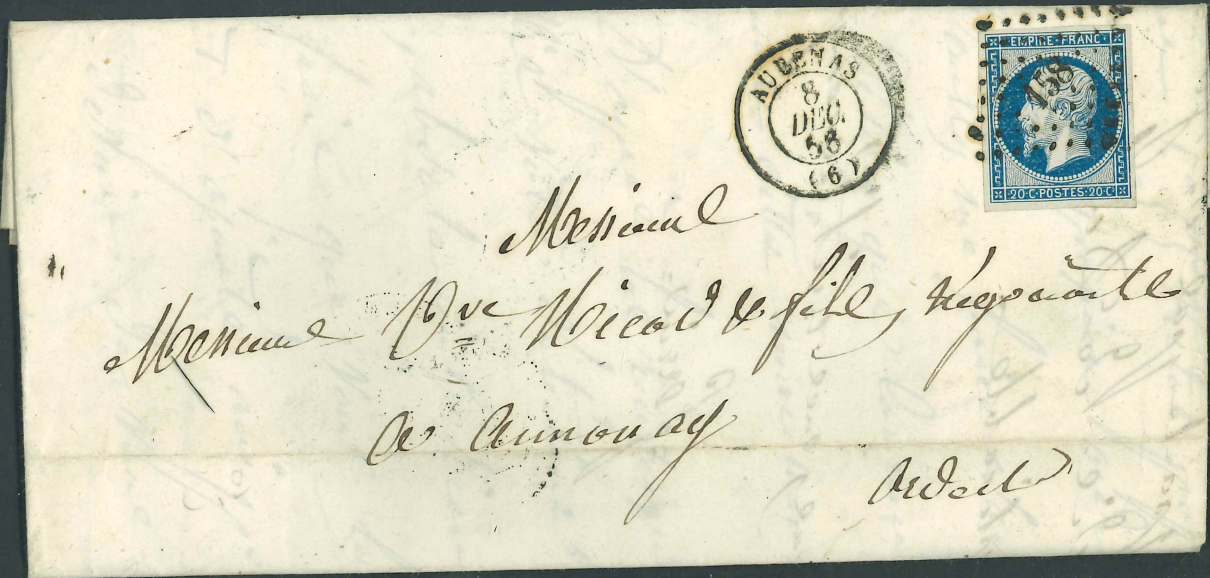 AUBENAS
8
DEC.
58
(6)
EMPIRE · FRANC ·
158
20 · C · POSTES · 20 · C
Messieurs
Messieurs Vve Nicod & fils, négociants
a annonay
ardech